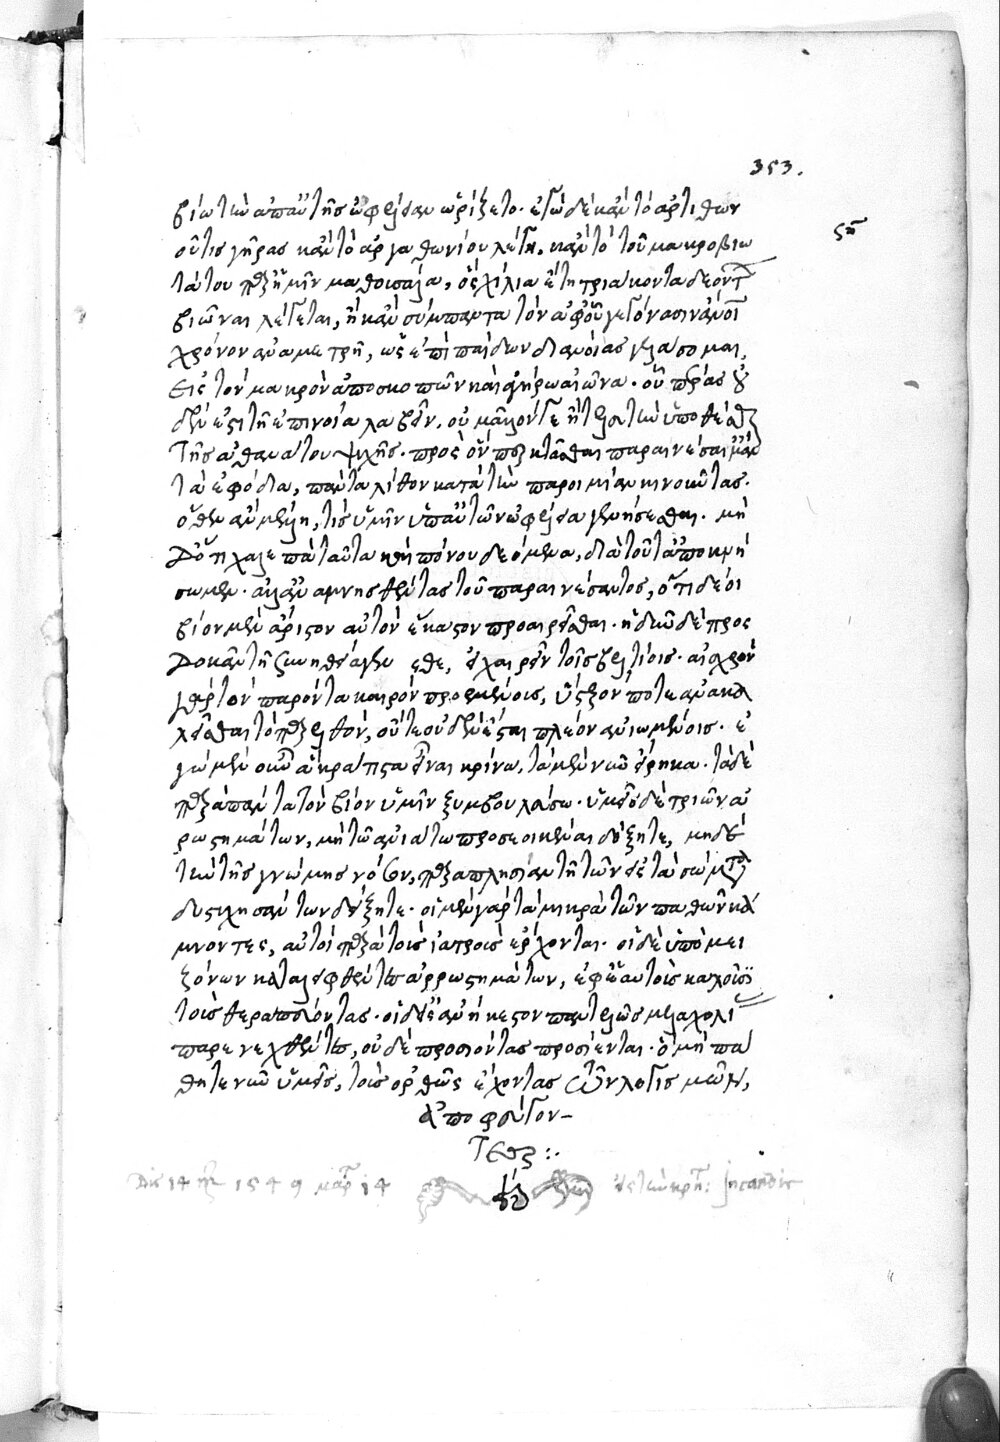 353.
βίω τὴν ἀπ' αὐτῆς ὠφέλειαν ὡρίζετο. ἐγὼ δὲ κἂν τὸ ἀρτιθων
οὔτις γῆρας κἂν τὸ ἀργαθωνίου λέγῃ. κἂν τὸ τοῦ μακροβιω
τάτου παρ' ἡμῖν μαθουσάλα, ὃς χίλια ἔτη τριάκοντα δεόντ
βιῶναι λέγεται, ἢ κἂν σύμπαντα τὸν ἀφ' οὗ γεγόνασιν ἄνοι
χρόνον ἀναμετρῇ, ὡς ἐπὶ παίδων διανοίας γελάσομαι,
εἰς τὸν μακρὸν ἀποσκοπῶν καὶ ἀγήρω αἰῶνα. οὗ πέρας οὐ
δέν ἐστι τῇ ἐπινοία λαβεῖν. οὐ μᾶλλόν γε ἢ τελευτὴν ὑποθέσθαι
τῆς ἀθανάτου ψυχῆς. πρὸς ὅνπερ κτᾶσθαι παραινέσαιμ' ἂν
τὰ ἐφόδια, πάντα λίθον κατὰ τὴν παροιμίαν κινοῦντας.
ὅθεν ἂν μέλλῃ, τις ὑμῖν ὑπ' αὐτῶν ὠφέλεια γενήσεσθαι. μὴ
δ' ὅτι χαλεπὰ ταῦτα καὶ πόνου δεόμενα, διὰ τοῦτ' ἀποκνή
σωμεν. ἀλλ' ἀναμνησθέντας τοῦ παραινέσαντος, ὅτι δέοι
βίον μὲν ἄριστον αὐτὸν ἕκαστον προαιρεῖσθαι. ἡδὺν δὲ προς
δοκᾶν τῇ συνηθείᾳ γενέσθαι, ἐγχειρεῖν τοῖς βελτίοις. αἰσχρὸν
γὰρ τὸν παρόντα καιρὸν προεμένοις, ὕστερόν ποτε ἀνακα
λεῖσθαι τὸ παρελθόν, ὅτε οὐδὲν ἔσται πλέον ἀνιωμένοις. ἐ
γὼ μὲν οὖν ἃ κράτιστα εἶναι κρίνω, τὰ μὲν νῦν εἴρηκα. τὰ δὲ
παρὰ πάντα τὸν βίον ὑμῖν ξυμβουλεύσω. ὑμεῖς δὲ τριῶν ἀ
ρωστημάτων, μὴ τῷ ἀνιάτῳ προσεοικέναι δόξητε, μηδὲ
τὴν τῆς γνώμης νόσον, παραπλησίαν τῇ τῶν εἰς τὰ σώματα
δυστυχησάντων δείξητε. οἱ μὲν γὰρ τὰ μικρὰ τῶν παθῶν κά
μνοντες, αὐτοὶ παρὰ τοὺς ἰατροὺς ἔρχονται. οἱ δὲ ὑπὸ μει
ζόνων καταληφθέντες ἀρρωστημάτων, ἐφ' ἑαυτοὺς καλοῦσι
τοὺς θεραπεύσοντας. οἱ δ' εἰς ἀνήκεστον παντελῶς μελαγχολί
παρενεχθέντες, οὐδὲ προσιόντας προσίενται. ὃ μὴ πά
θητε νῦν ὑμεῖς, τοὺς ὀρθῶς ἔχοντας τῶν λογισμῶν,
ἀποφεύγοντες